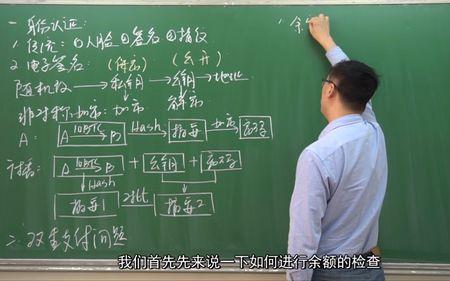 一.身份认证:
1.传统: ①人脸 ②签名 ③指纹
2.电子签名: (保密) (公开)
随机数 → 私钥 → 公钥 → 地址
非对称加密: 加密 解密
A: A 10BTC→ B Hash→ 摘要 加密→ 密码
广播: A 10BTC→ B + 公钥 + 密码
Hash
摘要1 对比 摘要2
二.双重支付问题
1.余
我们首先先来说一下如何进行余额的检查